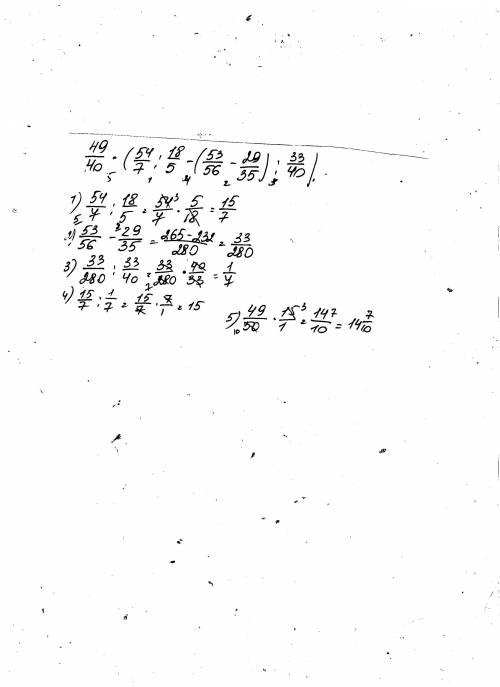 49/40 · (54/7 : 18/5 - (53/56 - 29/35) : 33/40).
1) 54/7 : 18/5 = 54/7 · 5/18 = 15/7
2) 53/56 - 29/35 = 265-232/280 = 33/280
3) 33/280 : 33/40 = 33/280 · 40/33 = 1/7
4) 15/7 : 1/7 = 15/7 · 7/1 = 15
5) 49/50 · 15/1 = 147/10 = 14 7/10